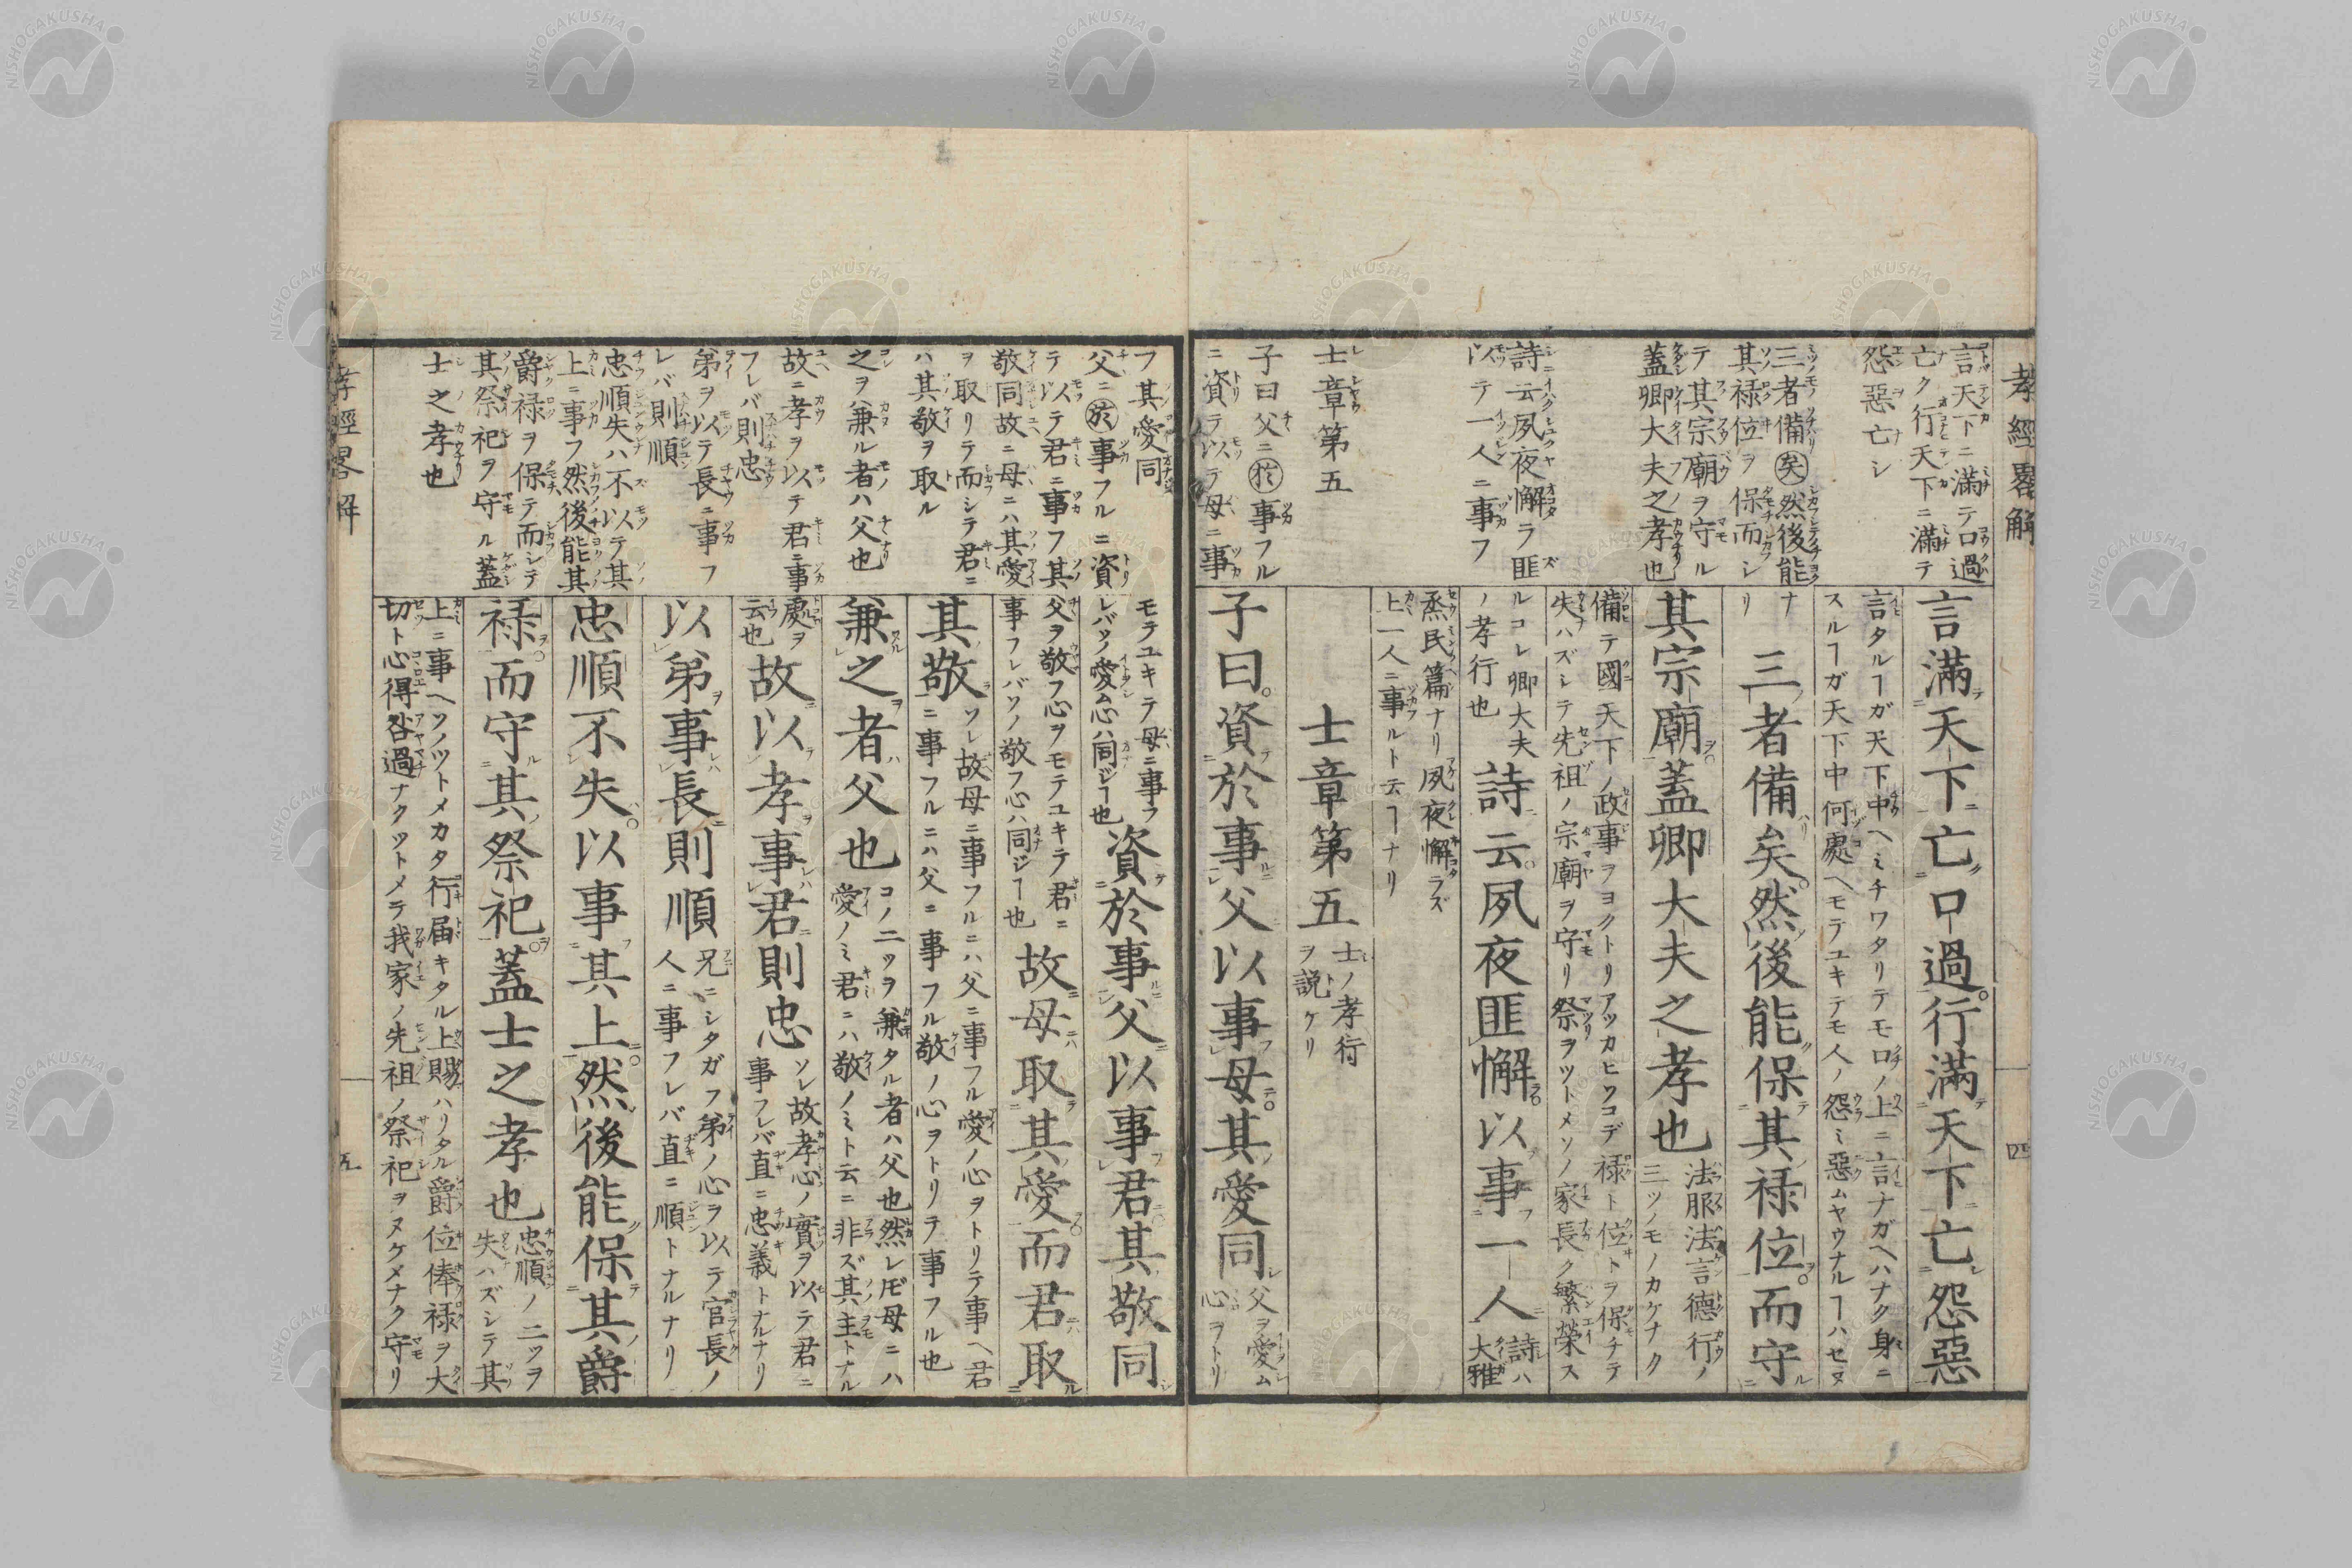 孝經畧解
言天下ニ滿テ口過
亡ク行天下ニ滿テ
怨惡亡シ
三者備矣然後能
其禄位ヲ保而シ
テ其宗廟ヲ守ル
蓋卿大夫之孝也
詩云夙夜懈ラズ匪
以テ一人ニ事フ
士章第五
子曰父ニ於事フル
ニ資テ以テ母ニ事
言滿天下亡口過。行滿天下亡怨惡
言タルヿガ天下中ヘミチワタリテモ口ノ上ニ言ナガヘハナク身ニ
スルヿガ天下中何處ヘモテユキテモ人ノ怨ミ惡ムヤウナルヿハセヌ
ナリ
三者備矣。然後能保其禄位。而守
其宗廟。蓋卿大夫之孝也
法服法言德行ノ
三ツノモノカケナク
備テ國天下ノ政事ヲヨクトリアツカヒツコデ禄ト位トヲ保チテ
失ハズシテ先祖ノ宗廟ヲ守リ祭ヲツトメソノ家長ク繁榮ス
ルコレ卿大夫
ノ孝行也
詩云。夙夜匪懈。以事一人
詩ハ
大雅
烝民篇ナリ夙夜懈ラズ
上一人ニ事ルト云ヿナリ
士章第五
士ノ孝行
ヲ説ケリ
子曰。資於事父以事母。其愛同
父ヲ愛ム
心ヲトリ
フ其愛同
父ニ於事フルニ資
テ以テ君ニ事フ其
敬同故ニ母ニハ其愛
ヲ取リテ而シテ君ニ
ハ其敬ヲ取ル
之ヲ兼ル者ハ父也
故ニ孝ヲ以テ君ニ事
フレバ則忠
弟ヲ以テ長ニ事フ
レバ則順
忠順失ハ不以テ其
上ニ事フ然後能其
爵禄ヲ保テ而シテ
其祭祀ヲ守ル蓋
士之孝也
モテユキテ母ニ事フ
レバソノ愛心ハ同ジヿ也
資於事父以事君。其敬同
父ヲ敬フ心ヲモテユキテ君ニ
事フレバソノ敬フ心ハ同ジヿ也
故母取其愛。而君取
其敬
ソレ故母ニ事フルニハ父ニ事フル愛ノ心ヲトリテ事ヘ君
ニ事フルニハ父ニ事フル敬ノ心ヲトリテ事フル也
兼之者父也
コノ二ツヲ兼タル者ハ父也然レドモ母ニハ
愛ノミ君ニハ敬ノミト云ニ非ズ其主トナル
處ヲ
云也
故以孝事君則忠
ソレ故孝心ノ實ヲ以テ君ニ
事フレバ直ニ忠義トナルナリ
以弟事長則順
兄ニシタガフ弟ノ心ヲ以テ官長ノ
人ニ事フレバ直ニ順トナルナリ
忠順不失。以事其上。然後能保其爵
禄。而守其祭祀。蓋士之孝也
忠順ノ二ツヲ
失ハズシテ其
上ニ事ヘソノツトメカタ行届キタル上賜ハリタル爵位俸禄ヲ大
切ト心得咎過ナクツトメテ我家ノ先祖ノ祭祀ヲヌケメナク守リ
孝經畧解
五